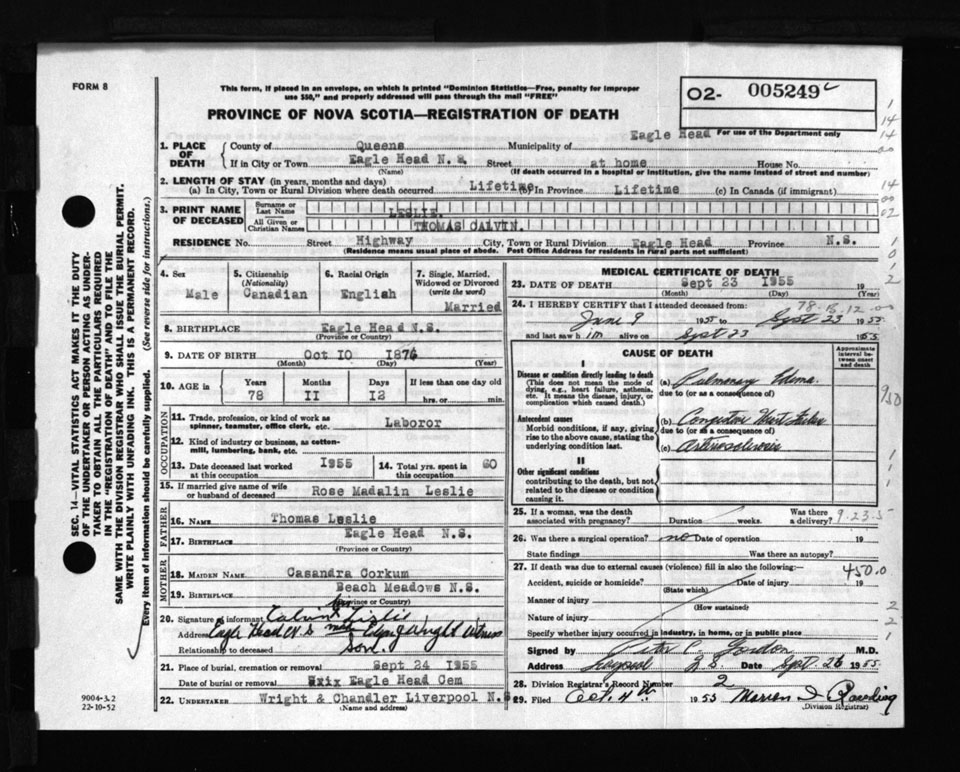 FORM 8
This form, if placed in an envelope, on which is printed "Dominion Statistics—Free, penalty for improper
use $50," and properly addressed will pass through the mail "FREE"
O2- 005249
PROVINCE OF NOVA SCOTIA—REGISTRATION OF DEATH
For use of the Department only
1. PLACE OF DEATH County of Queens Municipality of Eagle Head
If in City or Town Eagle Head N.S. Street at home House No.
(Name) (If death occurred in a hospital or institution, give the name instead of street and number)
2. LENGTH OF STAY (in years, months and days)
(a) In City, Town or Rural Division where death occurred Lifetime (b) In Province Lifetime (c) In Canada (if immigrant)
3. PRINT NAME OF DECEASED Surname or Last Name LESLIE.
All Given or Christian Names THOMAS CALVIN.
RESIDENCE No. Street Highway City, Town or Rural Division Eagle Head Province N.S.
(Residence means usual place of abode. Post Office Address for residents in rural parts not sufficient)
4. Sex Male
5. Citizenship (Nationality) Canadian
6. Racial Origin English
7. Single, Married, Widowed or Divorced (write the word) Married
8. BIRTHPLACE Eagle Head N.S.
(Province or Country)
9. DATE OF BIRTH Oct IO 1876
(Month) (Day) (Year)
10. AGE in Years Months Days If less than one day old
78 II I2 hrs. or min.
OCCUPATION
11. Trade, profession, or kind of work as spinner, teamster, office clerk, etc. Laboror
12. Kind of industry or business, as cotton-mill, lumbering, bank, etc.
13. Date deceased last worked at this occupation I955
14. Total yrs. spent in this occupation 60
15. If married give name of wife or husband of deceased Rose Madalin Leslie
FATHER
16. NAME Thomas Leslie
17. BIRTHPLACE Eagle Head N.S.
(Province or Country)
MOTHER
18. MAIDEN NAME Casandra Corkum
19. BIRTHPLACE Beach Meadows N.S.
(Province or Country)
20. Signature of informant Calvin Leslie
Address Eagle Head N.S. Wright Witness
Relationship to deceased Son.
21. Place of burial, cremation or removal Sept 24 I955
Date of burial or removal Eagle Head Cem
22. UNDERTAKER Wright & Chandler Liverpool N.S.
(Name and address)
MEDICAL CERTIFICATE OF DEATH
23. DATE OF DEATH Sept 23 I955 19
(Month) (Day) (Year)
24. I HEREBY CERTIFY that I attended deceased from:
June 9 1955 to Sept 23 1955
and last saw h im alive on Sept 23 1955
CAUSE OF DEATH
Approximate interval between onset and death
I
Disease or condition directly leading to death
(This does not mean the mode of dying, e.g., heart failure, asthenia, etc. It means the disease, injury, or complication which caused death.)
(a) Pulmonary Edema
due to (or as a consequence of)
Antecedent causes
Morbid conditions, if any, giving rise to the above cause, stating the underlying condition last.
(b) Congestive Heart Failure
due to (or as a consequence of)
(c) Arteriosclerosis
II
Other significant conditions
contributing to the death, but not related to the disease or condition causing it.
25. If a woman, was the death associated with pregnancy? Duration weeks. Was there a delivery?
9.23.5
26. Was there a surgical operation? no Date of operation 19
State findings Was there an autopsy?
27. If death was due to external causes (violence) fill in also the following:—
450.0
Accident, suicide or homicide? Date of injury 19
(State which)
Manner of injury
(How sustained)
Nature of injury
Specify whether injury occurred in industry, in home, or in public place
Signed by Peter C. Gordon M.D.
Address N.S. Date Sept. 26 1955
28. Division Registrar's Record Number 2
29. Filed Oct. 4th 1955 Marion
(Division Registrar)
SEC. 14—VITAL STATISTICS ACT MAKES IT THE DUTY
OF THE UNDERTAKER OR PERSON ACTING AS UNDER-
TAKER TO OBTAIN ALL THE PARTICULARS REQUIRED
IN THE "REGISTRATION OF DEATH" AND TO FILE THE
SAME WITH THE DIVISION REGISTRAR WHO SHALL ISSUE THE BURIAL PERMIT.
WRITE PLAINLY WITH UNFADING INK. THIS IS A PERMANENT RECORD.
Every item of information should be carefully supplied. (See reverse side for instructions.)
9004-3.2
22-10-52